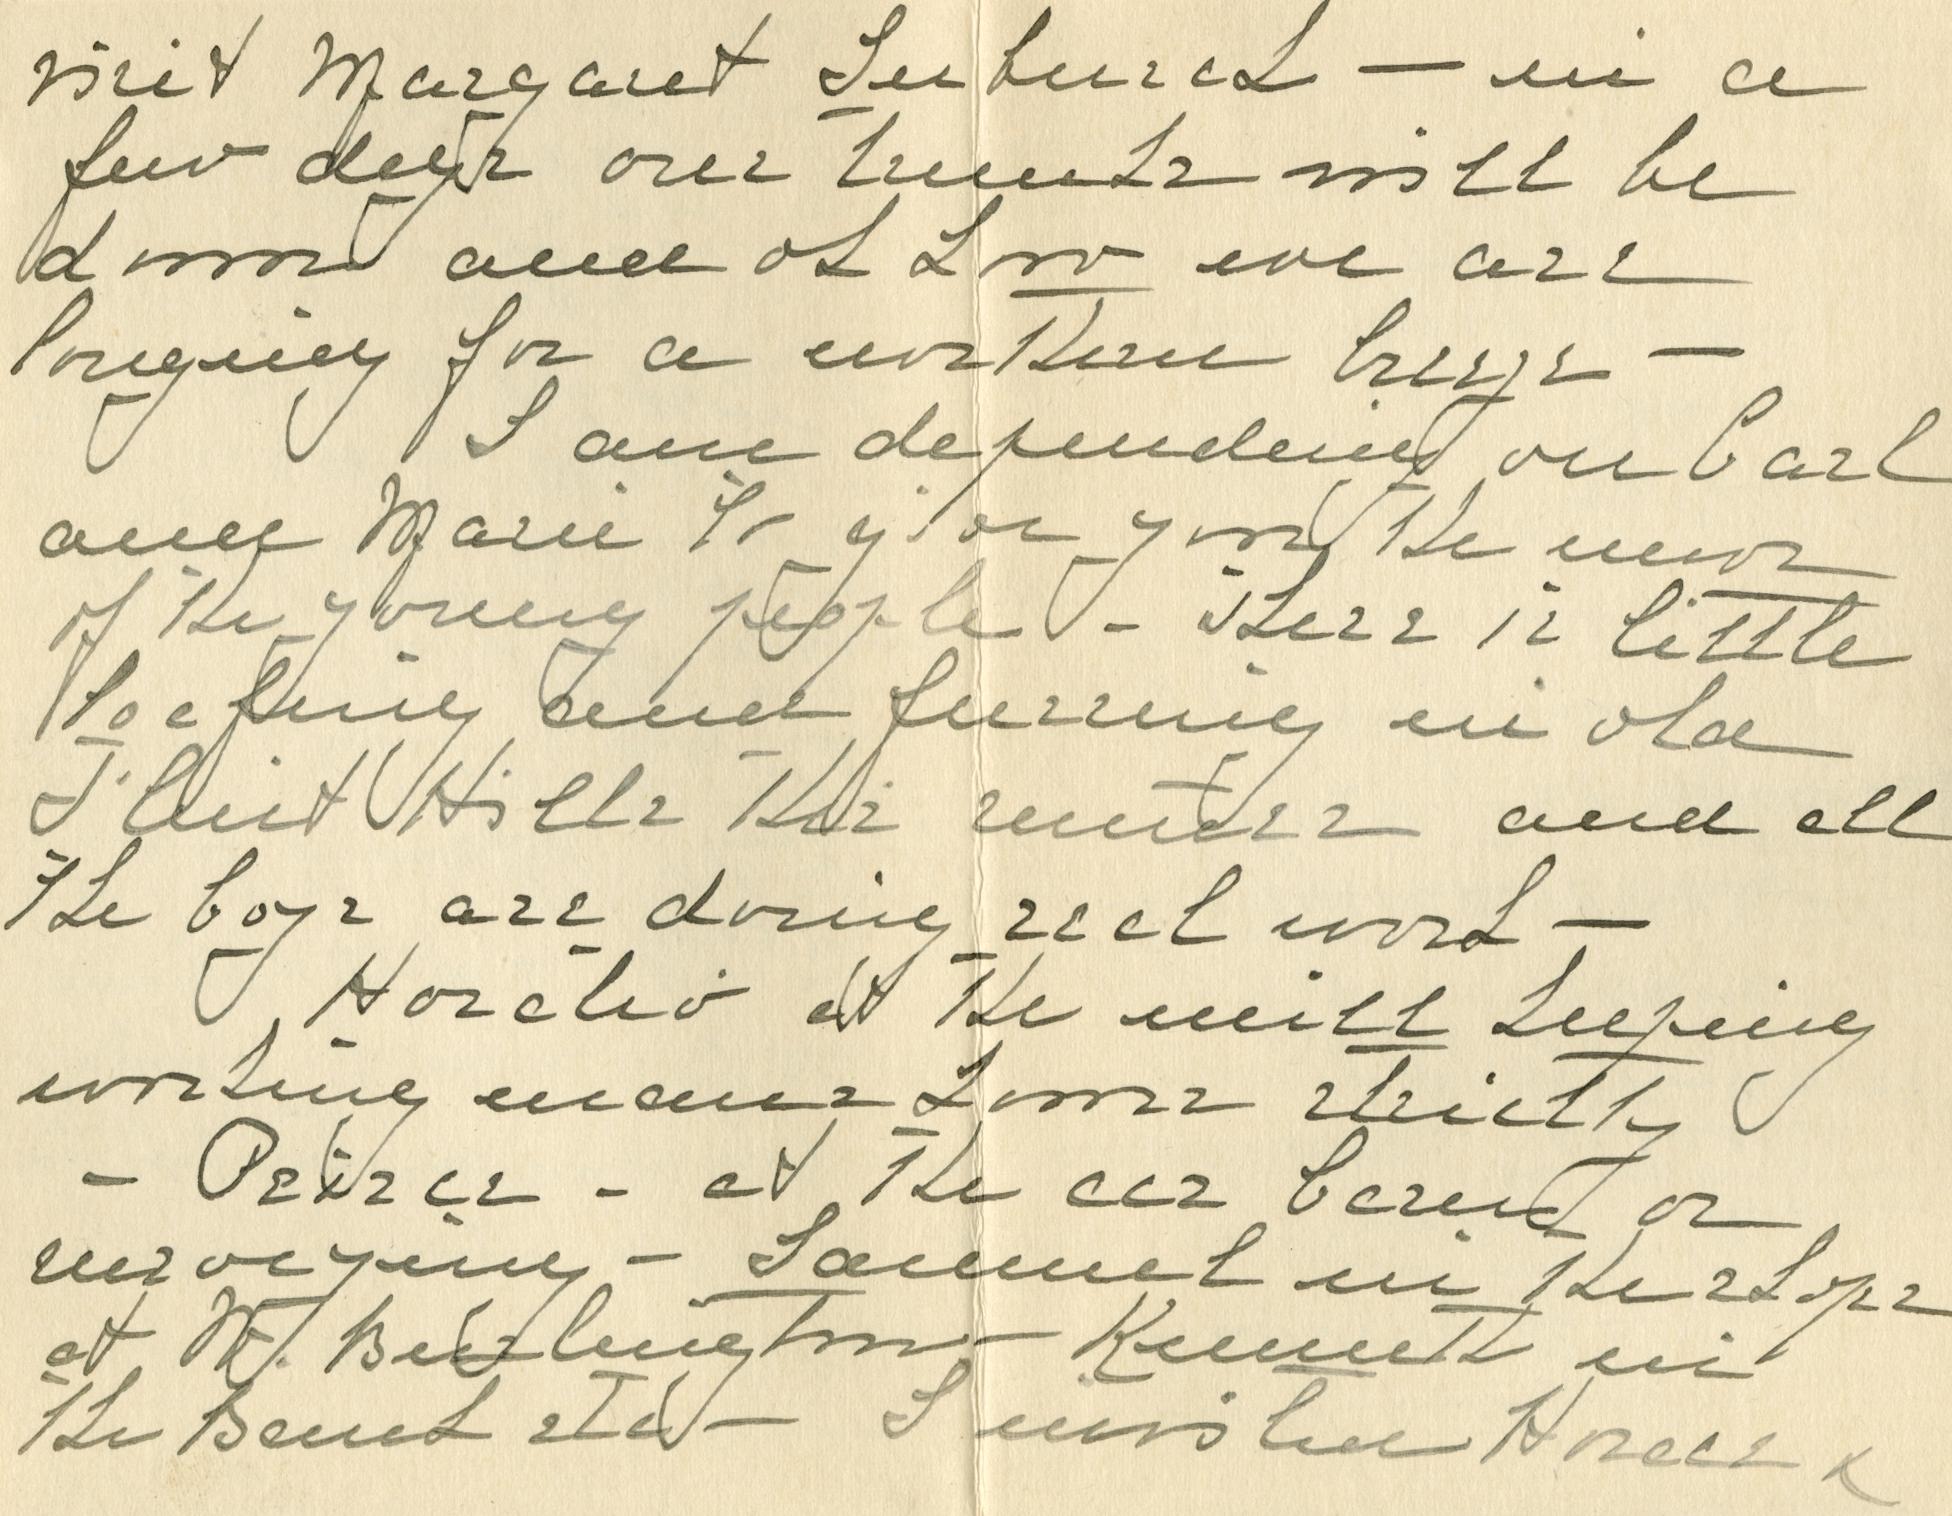 visit Margaret Suburch — in a
few days our trunks will be
down and oh how we are
longing for a northern breeze —
I am depending on Carl
and Marie to give you the news
of the young people - There is little
loafing and funning in old
Flint Hills this summer and all
the boys are doing real work —
Horatio at the mill keeping
working mans hours strictly
- Peirce - at the car barn or
surveying - Samuel in the shops
at W. Burlington - Kenneth in
the Bank etc - I invited Horace &